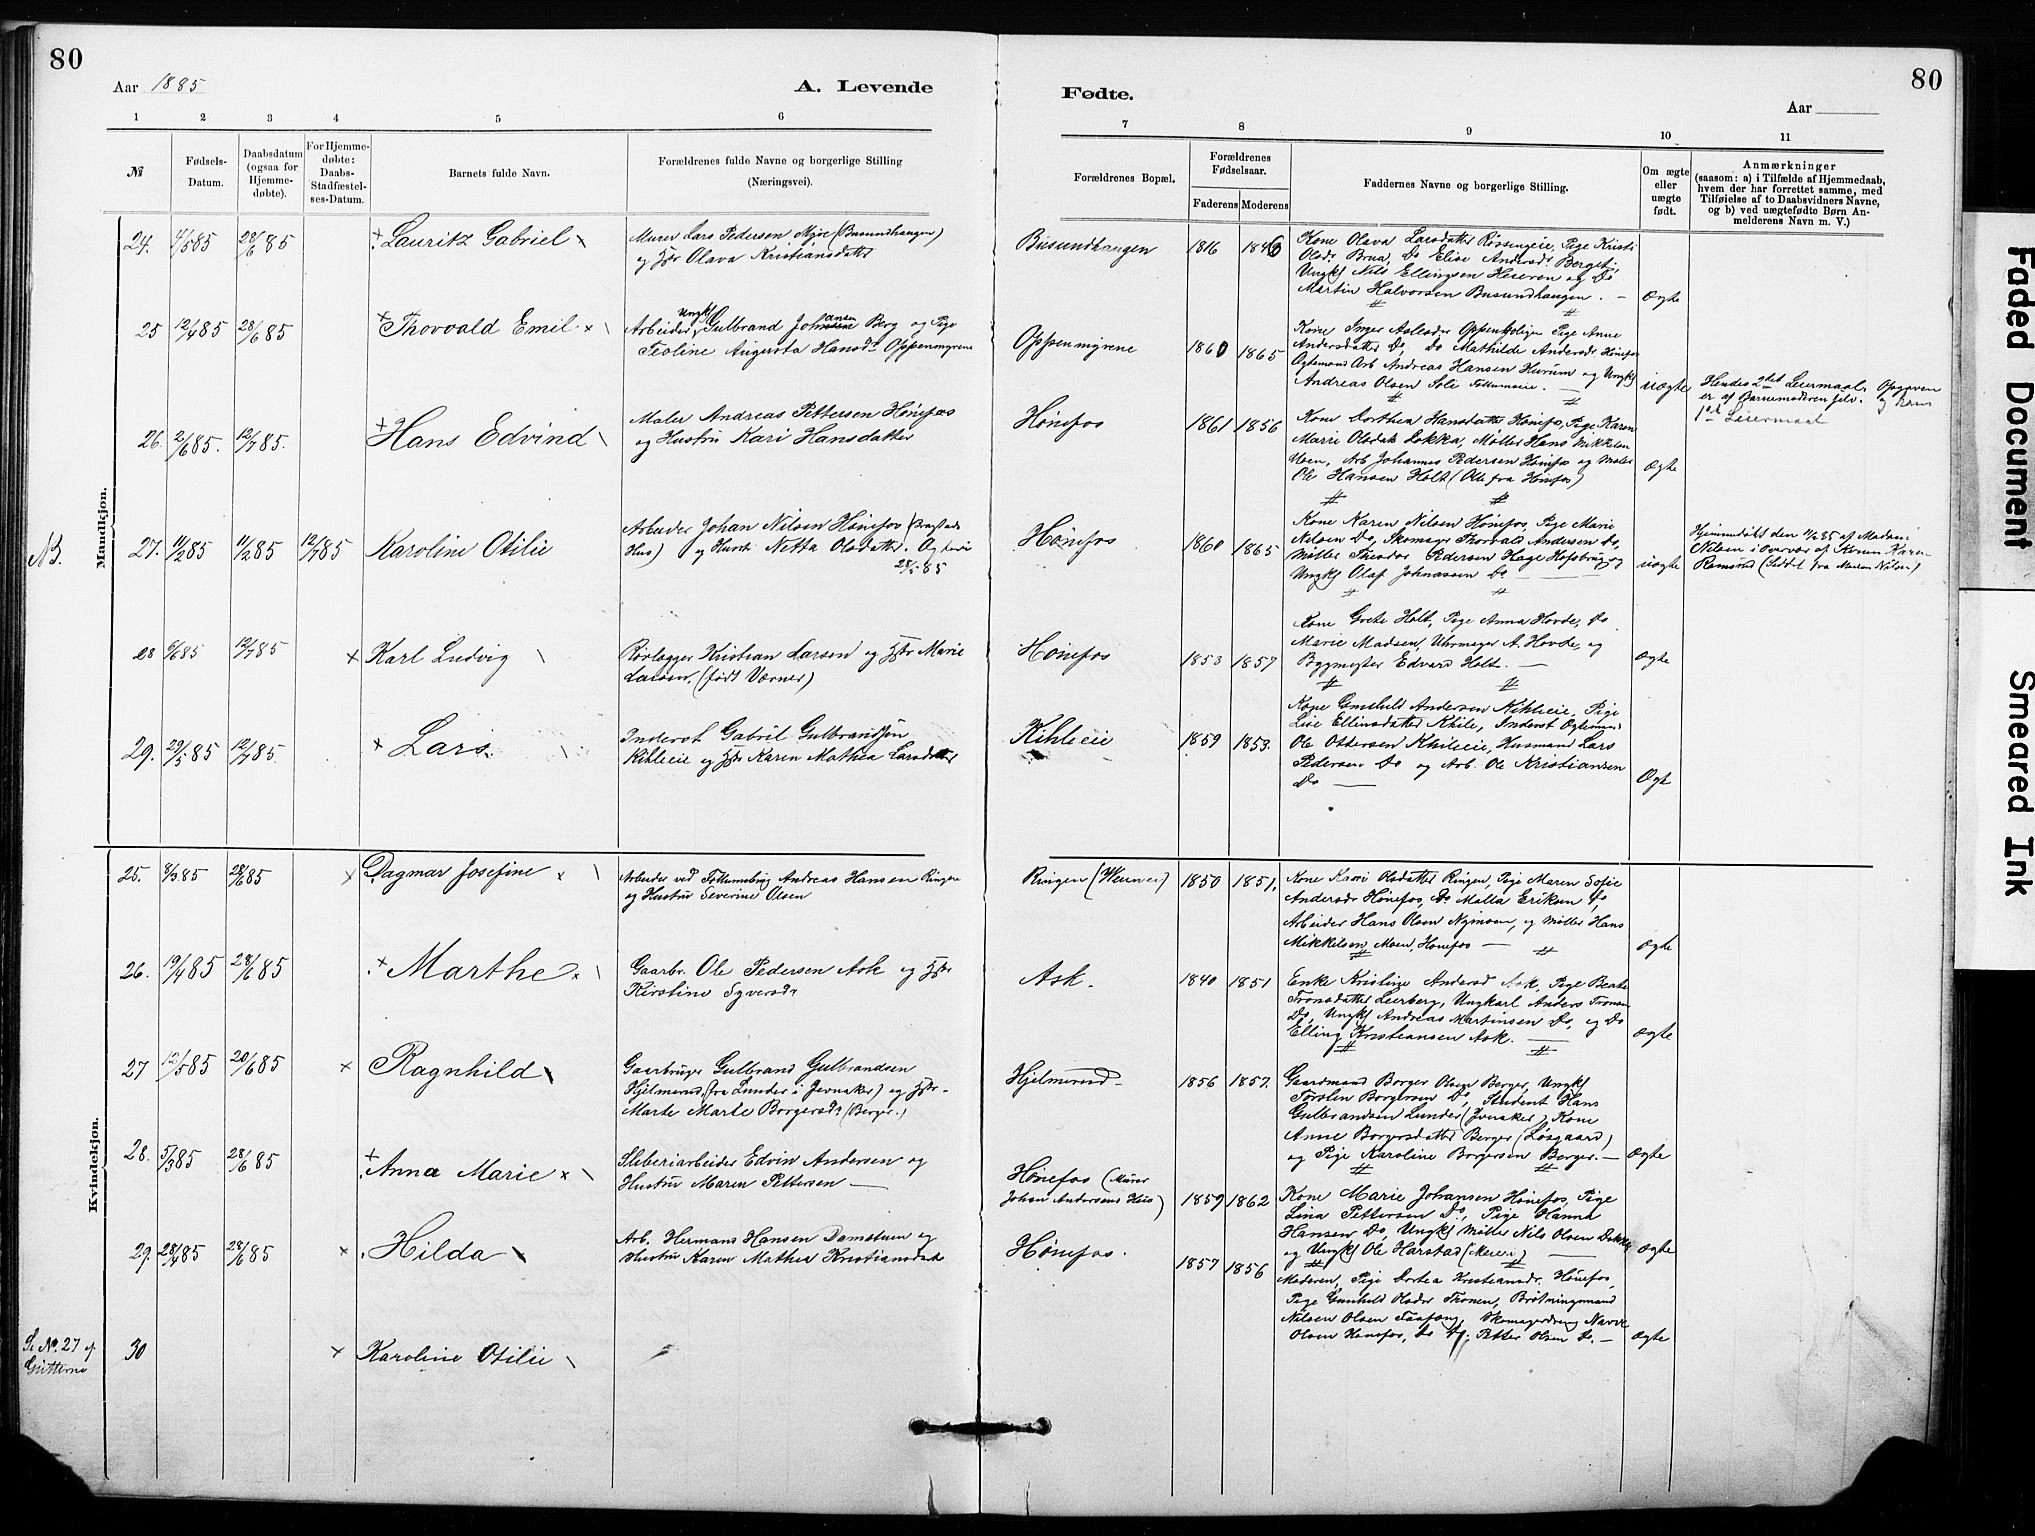 80
Aar 1885
A. Levende
1 2 3 4 5 6
№
Fødsels-Datum.
Daabsdatum (ogsaa for Hjemmedøbte).
For Hjemmedøbte: Daabs-Stadfæstelses-Datum.
Barnets fulde Navn.
Forældrenes fulde Navne og borgerlige Stilling
(Næringsvei).
Mandkjøn.
24. 4/5 85 28/6 85 Lauritz Gabriel
Murer Lars Pedersen Mjøe (Busundhaugen)
og Hstr Olava Kristiansdatter
25 12/4 85 28/6 85 Thorvald Emil
Ungk
Arbeider Gulbrand Johansen Berg og Pige
Teoline Augusta Hansdr Oppenmyrene
26. 2/6 85. 12/7 85. Hans Edvind
Maler Andreas Pettersen Hønefos
og Hustru Kari Hansdatter
NB.
27. 11/2 85 11/2 85 12/7 85 Karoline Otilie
Arbeider Johan Nilsen Hønefos (Bragstads
Hus) og Hustr Netta Olsdatter. Ogtevi
28/5 85
28 6/6 85 12/7 85 Karl Ludvig
Rørlægger Kristian Larsen og Hstr Marie
Larsen. (født Værner)
29. 29/5 85 12/7 85. Lars.
Inderst Gabril Gulbrandsen
Kihleeie og Hstr Karen Mathea Larsdatter
Kvindekjøn.
25. 8/3 85 28/6 85 Dagmar Josefine
Arbeider ved Follumsbrug Andreas Hansen Ringen
og Hustru Severine Olsen
26. 19/4 85 28/6 85 Marthe
Gaarbr. Ole Pedersen Ask og Hstr
Kirstine Syversdr
27 12/5 85 20/6 85 Ragnhild
Gaarbruger Gulbrand Gulbrandsen
Hjelmerud, (fra Lunder i Jevnaker) og Hstr
Marte Marie Borgersdr (Berger.)
28. 5/3 85 28/6 85 Anna Marie
Sliberiarbeider Edvin Andersen og
Hustru Maren Pettersen
29. 28/4 85 28/6 85 Hilda
Arb. Hermans Hansen Damstuen og
Hustru Karen Mathea Kristiansdatt
Se No. 27 af
Gutterne
30 Karoline Otilie
80
Fødte.
Aar
7 8 9 10 11
Forældrenes Bopæl.
Forældrenes Fødselsaar.
Faderens Moderens
Faddernes Navne og borgerlige Stilling.
Om ægte eller uægte født.
Anmærkninger
(saasom: a) i Tilfælde af Hjemmedaab,
hvem der har forrettet samme, med
Tilføielse af to Daabsvidners Navne,
og b) ved uægtefødte Børn Anmelderens Navn m. V.)
Busundhaugen 1816 1846
Kone Olava Larsdatter Røssengeie, Pige Kristi
Olsdr Brua, Do Elise Andersdr Berget,
Ungk Nils Ellingsen Heieren og Do
Martin Halvorsen Busundhaugen. Ægte
Oppenmyrene 1860 1865
Kone Inger Asles­dr Oppenbolige Pige Anne
Andersdatter Do, Do Mathilde Andersdr Hønefos
Ogtemand Arb Andreas Hansen Hurum og Ungk
Andreas Olsen Soli Follumseie. uægte
Hendes 2det Leiermaal. Opgaven
er af Barnemoderen selv. og hans
1ste Leiermaal
Hønefos 1861 1856
Kone Dorthea Hansdatter Hønefos, Pige Karen
Marie Olsdatr Løkka, Møller Hans Mikkelsen
Moen, Arb Johannes Pedersen Hønefos og Maler
Ole Hansen Holt (Alle fra Hønefos) Ægte
Hønefos 1860 1865
Kone Karen Nilsen Hønefos, Pige Marie
Nilsen Do, Skomager Thorvald Andersen Do,
Møller Theodor Pedersen Hage Hofsbrug og
Ungk Olaf Johnassen Do uægte
Hjemmedøbt den 11/2 85 af Madam
Nilsen i Overvær af Konen Karen
Ramsrud (Seddel fra Madam Nilsen)
Hønefos 1853 1857
Kone Grete Holt, Pige Anna Hovde, Do
Marie Madsen, Uhrmager A. Hovde, og
Bygmester Edvard Holt. Ægte
Kihleeie 1859 1853.
Kone Gunhild Andersen Kihleeie, Pige
Lise Ellingsdatter Khile, Inderst Ogtemand
Ole Ottersen Khileeie, Husmand Lars
Pedersen Do og Arb. Ole Kristiansen
Do Ægte
Ringen (Weunen) 1850 1851.
Kone Kari Olsdatter Ringen, Pige Maren Sofie
Andersdr Hønefos, Do Malla Eriksen Do,
Arbeider Hans Olsen Nymoen, og Møller Hans
Mikkelsen Moen, Hønefos Ægte
Ask. 1840 1851
Enke Kristine Andersd Ask, Pige Beate
Tronsdatter Leerberg, Ungkarl Anders Tronsen
Do, Ungk Andreas Martinsen Do, og Do
Elling Kristiansen Ask. Ægte
Hjelmerud 1856 1857.
Gaardmand Borger Olsen Berger, Ungk
Torsten Borgersen Do, Student Hans
Gulbrandsen Lunder (Jevnaker), Kone
Anne Borgersdatter Berger (Løsgaard)
og Pige Karoline Borgersen Berger. Ægte
Hønefos (Murer
Johan Andersens Hus) 1859 1862
Kone Marie Johansen Hønefos, Pige
Lina Pettersen Do, Pige Hanna
Hansen Do, Ungk Møller Nils Olsen Dokka
og Ungk Ole Harstad (Meieri) Ægte
Hønefos. 1857 1856
Moderen, Pige Dortea Kristiansdr. Hønefos,
Pige Gunhild Olsdr Tronen, Brøtningsmand
Nilsen Olsen Faafong, Skomagerdreng Navie
Olsen Hønefos, Do Do: Petter Olsen Do. Ægte
Faded Document
Smeared Ink